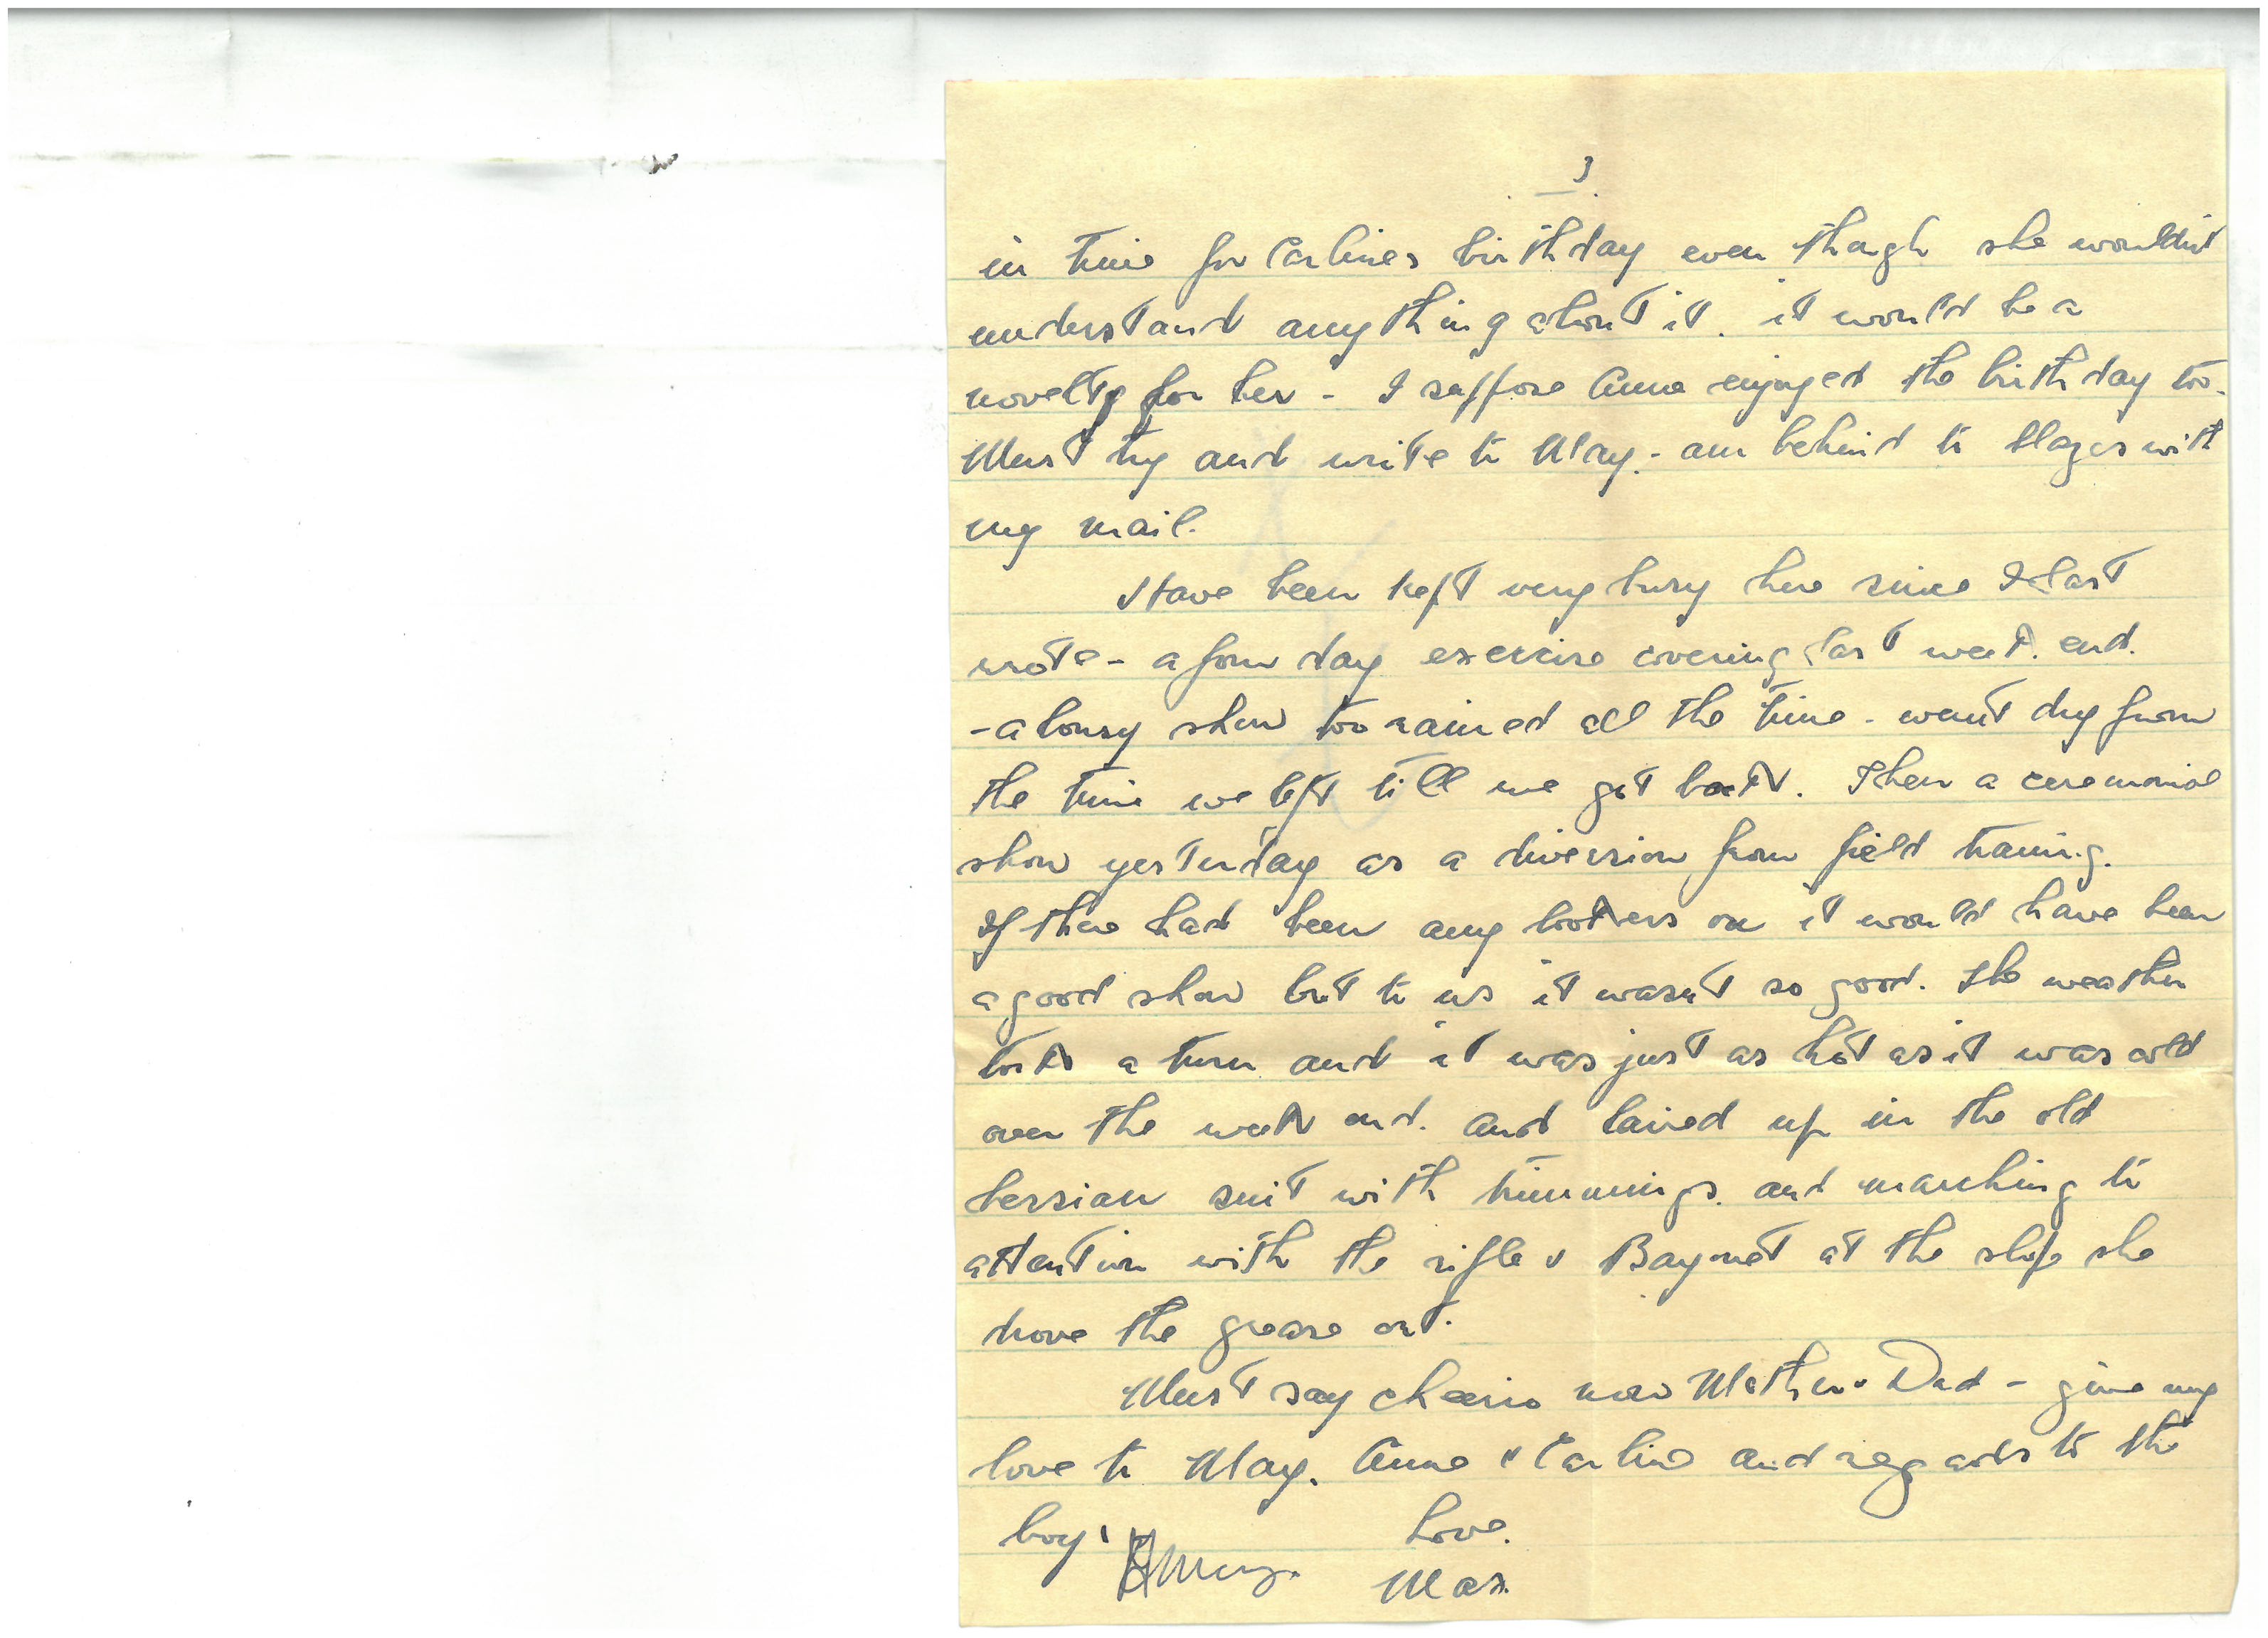 3.
in time for Earlines birthday even though she wouldn't
understand anything about it. it would be a
novelty for her - I suppose Anne enjoyed the birthday too.
Must try and write to May. - am behind to blazes with
my mail.
Have been kept very busy here since I last
wrote - a four day exercise covering last week. end.
- a lousy show too rained all the time - wasn't dry from
the time we left till we got back. Then a ceremonial
show yesterday as a diversion from field training.
If there had been any lookers on it would have been
a good show but to us it wasn't so good. The weather
took a turn and it was just as hot as it was cold
over the week end. and laired up in the old
hessian suit with trimmings. and marching to
attention with the rifle & Bayonet at the slope she
drove the grease out.
Must say cheerio now Mother & Dad - give my
love to May. Anne & Earline and regards to the
boys
Love.
Max.